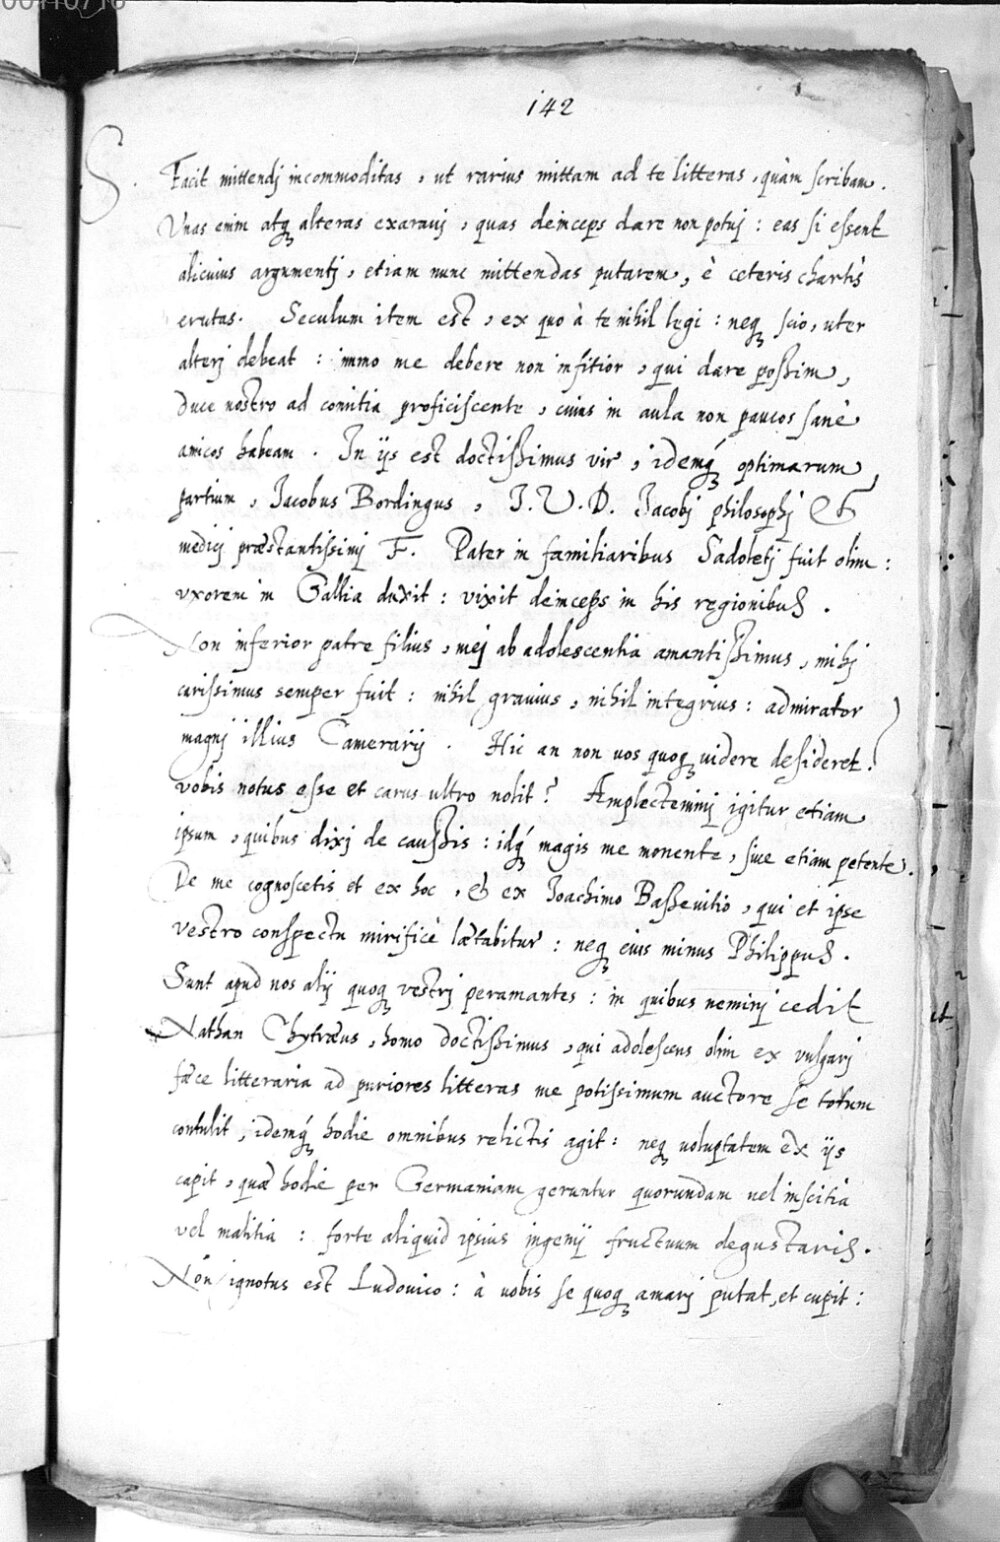 142
S. Facit mittendj incommoditas, ut rarius mittam ad te litteras, quàm scribam.
Vnas enim atq; alteras exarauj, quas deinceps dare non potuj: eas si essent
alicuius argumentj, etiam nunc mittendas putarem, è ceteris chartis
erutas. Seculum item est, ex quo à te nihil legi: neq; scio, uter
alterj debeat: immo me debere non infitior, qui dare possim,
Duce nostro ad comitia proficiscente, cuius in aula non paucos sanè
amicos habeam. In ijs est doctissimus vir, idemq́; optimarum
partium, Jacobus Bordingus, J.V.D. Jacobj philosophj &
medicj præstantissimj F. Pater in familiaribus Sadoletj fuit olim:
vxorem in Gallia duxit: vixit deinceps in his regionibus.
Non inferior patre filius, mej ab adolescentia amantissimus, mihj
carissimus semper fuit: nihil grauius, nihil integrius: admirator
magnj illius Camerarij. Hic an non uos quoq; uidere desideret?
vobis notus esse et carus ultro nolit? Amplecteminj igitur etiam
ipsum, quibus dixj de caussis: idq́; magis me monente, siue etiam petente.
De me cognoscetis et ex hoc, & ex Joachimo Basseuitio, qui et ipse
vestro conspectu mirificè lætabitur: neq; eius minus Philippus.
Sunt apud nos alij quoq; vestrj peramantes: in quibus neminj cedit
Nathan Chytræus, homo doctissimus, qui adolescens olim ex vulgarj
fæce litteraria ad puriores litteras me potissimum auctore se totum
contulit, idemq́; hodie omnibus relictis agit: neq; uoluptatem ex ijs
capit, quæ hodie per Germaniam geruntur quorundam uel inscitia
vel malitia: forte aliquid ipsius ingenij fructuum degustaris.
Non ignotus est Ludouico: à uobis se quoq; amarj putat, et cupit: